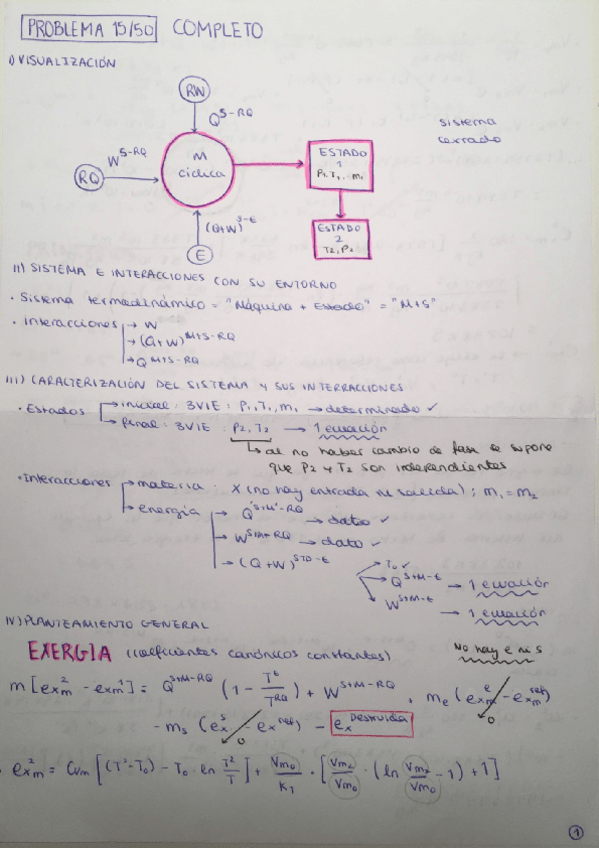 PROBLEMA 15/50 COMPLETO
I) VISUALIZACIÓN
RW
Q^S-RQ
sistema
cerrado
W^S-RQ
RQ
M
cíclica
ESTADO
1
P1, T1, m1
(Q+W)^S-E
E
ESTADO
2
T2, P2
II) SISTEMA E INTERACCIONES CON SU ENTORNO
· Sistema termodinámico = "Máquina + Estado" = "M+S"
· Interacciones → W
→ (Q+W)^M+S-RQ
→ Q^M+S-RQ
III) CARACTERIZACIÓN DEL SISTEMA Y SUS INTERACCIONES
· Estados → inicial: 3VIE: P1, T1, m1 → determinado ✓
→ final: 3VIE: P2, T2 → 1 ecuación
↳ al no haber cambio de fase se supone
que P2 y T2 son independientes
· Interacciones → materia: X (no hay entrada ni salida); m1 = m2
→ energía → Q^S+M-RQ → dato ✓
→ W^SM+RQ → dato ✓
→ (Q+W)^-E
→ T0 ✓
→ Q^S+M-E → 1 ecuación
→ W^S+M-E → 1 ecuación
IV) PLANTEAMIENTO GENERAL
No hay e ni s
EXERGIA (coeficientes canónicos constantes)
m [ex_m^2 - ex_m^1] = Q^S+M-RQ (1 - T^E/T^RQ) + W^S+M-RQ + m_e (ex_m^e - ex_m^ref) 0
- m_s (ex^s - ex^ref) 0 - ex^Destruida
· ex_m^2 = C_vm [(T^2 - T_0) - T_0 · ln T^2/T] + V_m0/K_T · [V_m2/V_m0 · (ln V_m2/V_m0 - 1) + 1]
1